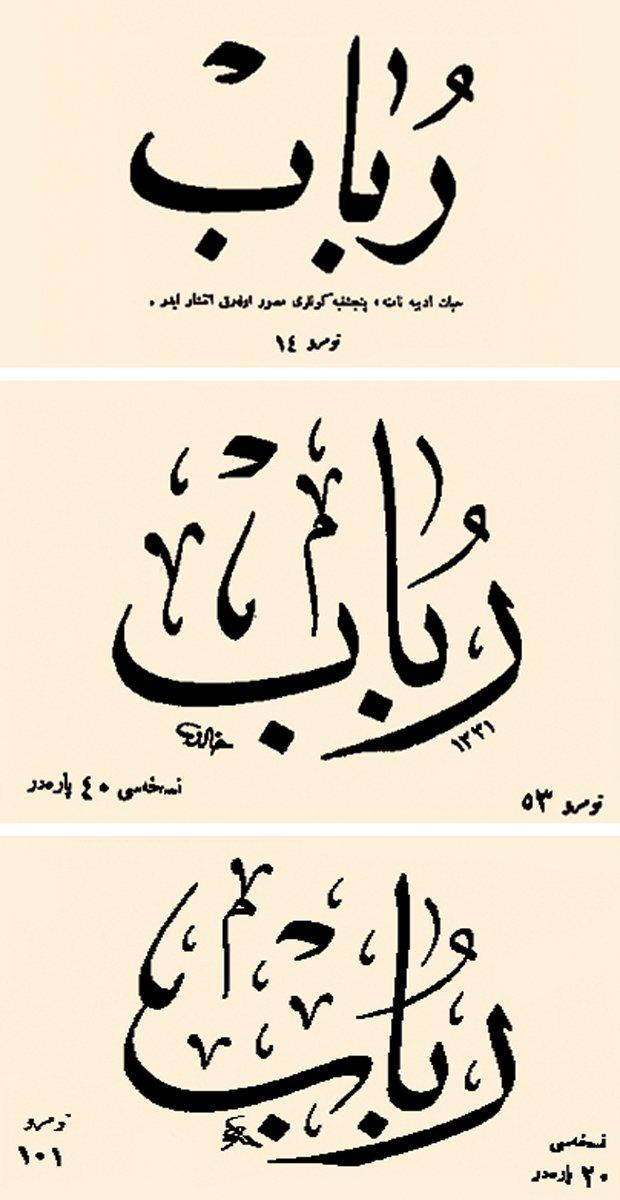 رُبابْ
حيات ادبيه نك ، پنجشنبه كونلرى مصور اوله‌رق انتشار ايدر .
نومرو ١٤
رُبابْ
١٣٣١
نسخه‌سى ٤٠ پاره‌در
نومرو ٥٣
رُبابْ
نومرو
١٠١
نسخه‌سى
٢٠ پاره‌در